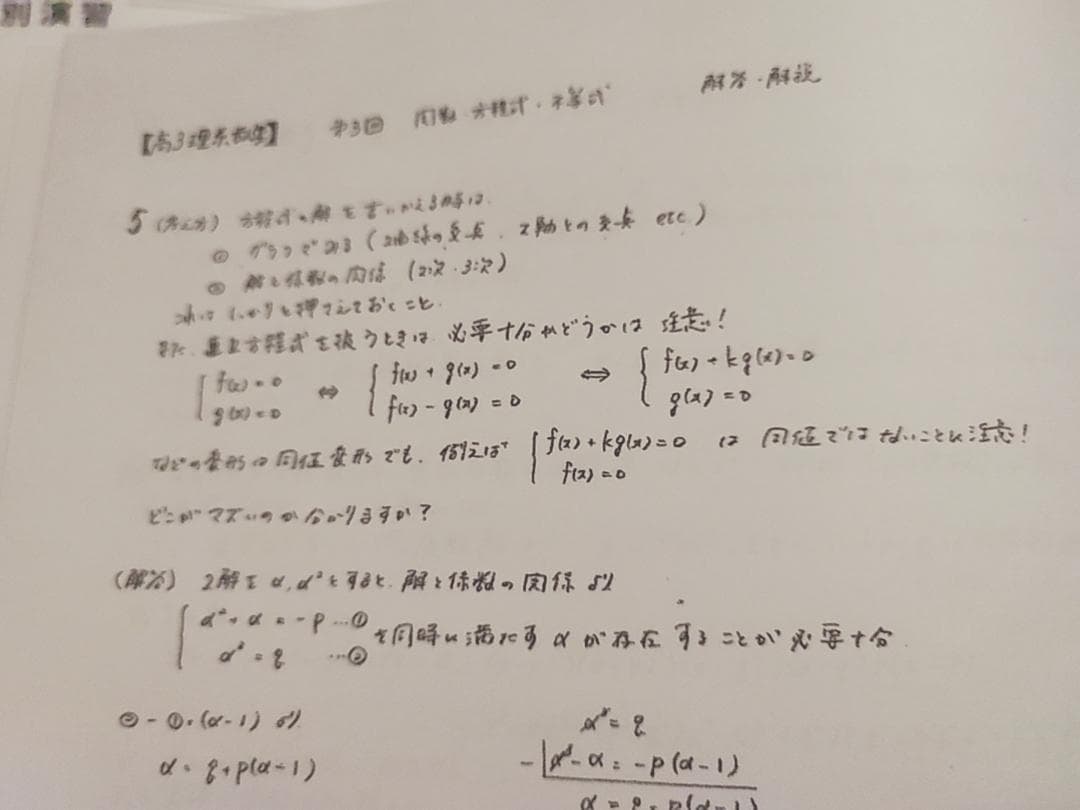 別演習
【高3理系数学】 第3回 関数 方程式・不等式 解答・解説
5 (考え方) 方程式の解を言いかえる時は、
① グラフでみる (2曲線の交点、x軸との交点 etc)
② 解と係数の関係 (2次・3次)
これはしっかりと押さえておくこと。
また、連立方程式を扱うときは、必要十分かどうかは 注意!
{ f(x)=0 ⇔ { f(x)+g(x)=0 ⇔ { f(x)+kg(x)=0
g(x)=0 f(x)-g(x)=0 g(x)=0
などの変形は同値変形でも、例えば { f(x)+kg(x)=0 は 同値ではないことに注意!
f(x)=0
どこがマズいのか分かりますか?
(解答) 2解を α, α²とすると、解と係数の関係より
{ α²+α=-p …①
α³=q …② を同時に満たす αが存在することが必要十分.
②-①×(α-1) より
α=q+p(α-1)
α³=q
-) α³-α=-p(α-1)
α=q+p(α-1)